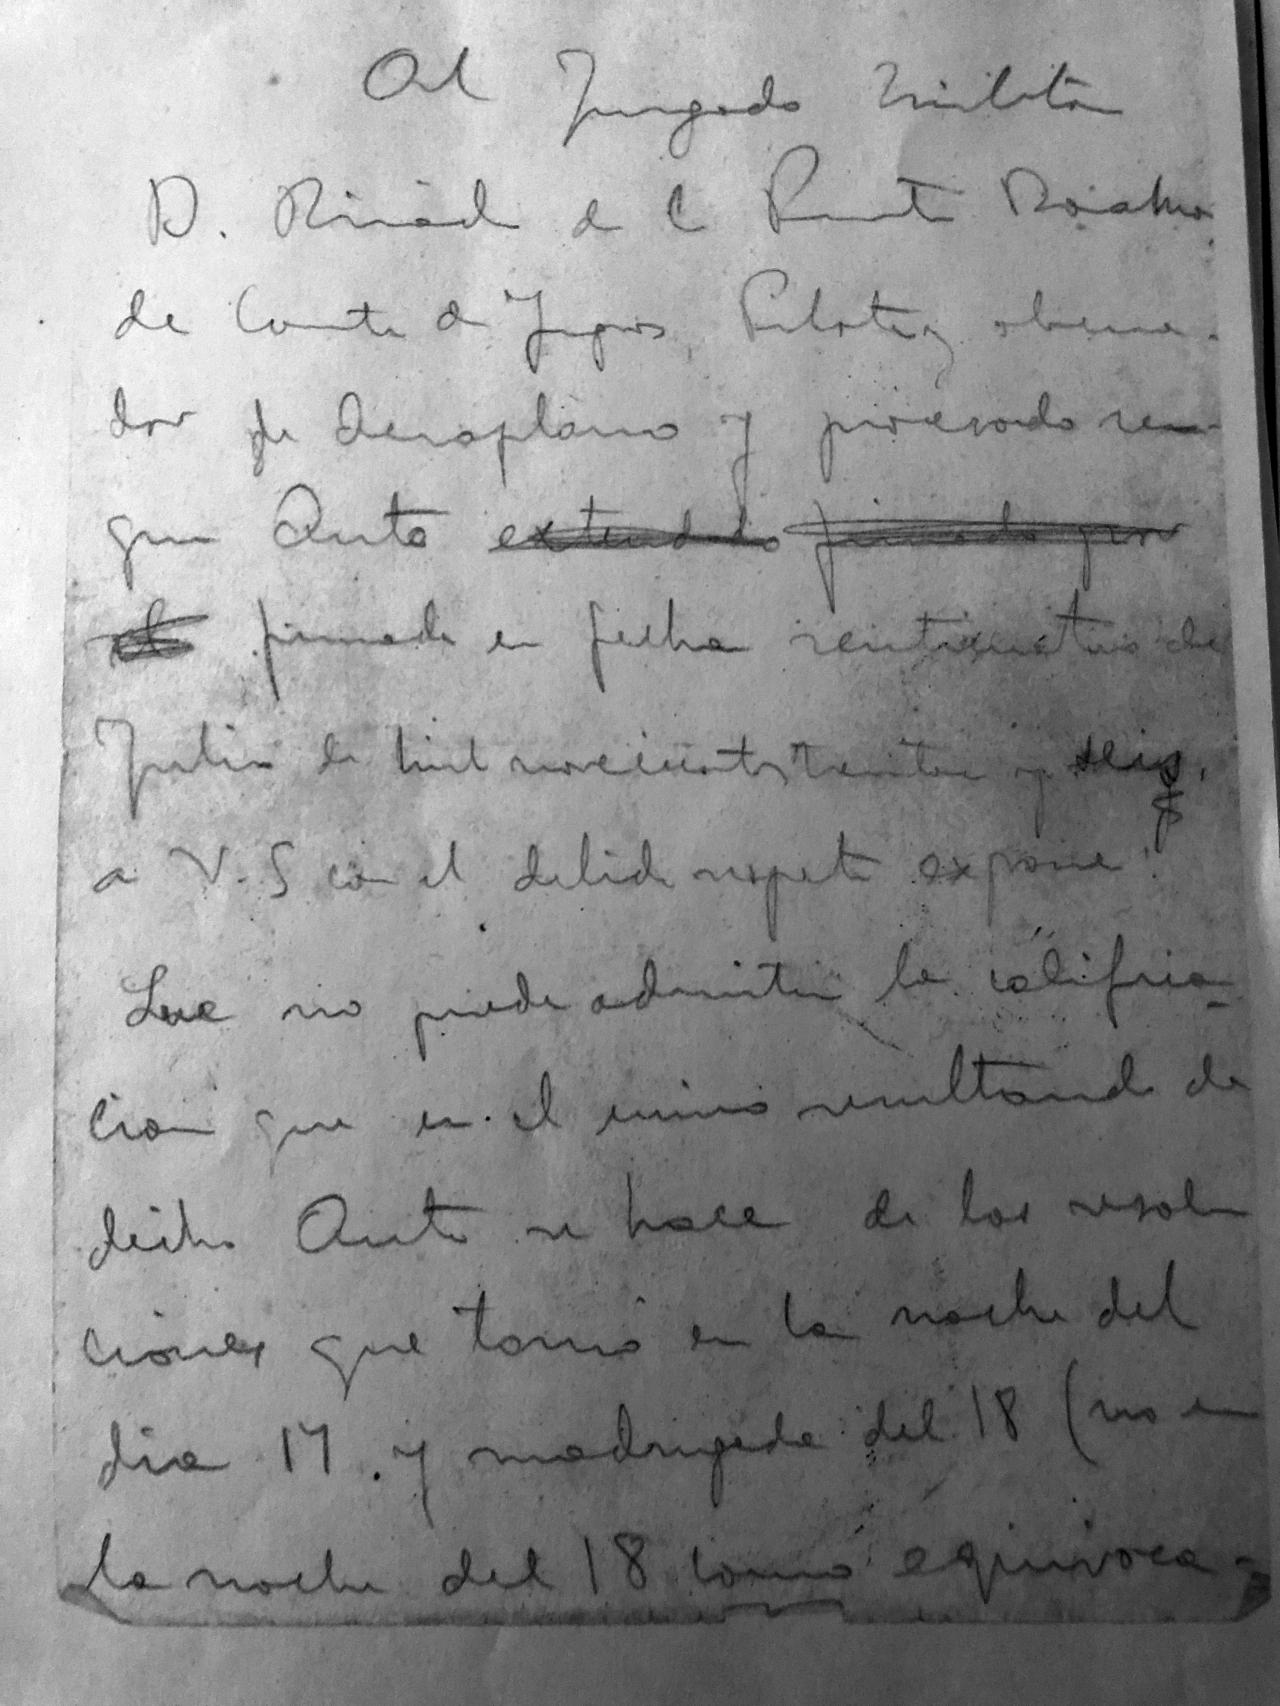 Al Juzgado Militar
D. Ricardo de la Puente Bahamo
de Comte de Ingros, Piloto y observa-
dor de Aeroplano y procesado se-
gun Auto extendido firmado por
el firmado en fecha veinticuatro de
Julio de mil novecientos treinta y seis,
a V.S con el debido respeto expone:
Que no puede admitir la califica-
cion que en el mismo resultando de
dicho Auto se hace de las resolu
ciones que tomó en la noche del
dia 17 y madrugada del 18 (no en
la noche del 18 como equivoca-